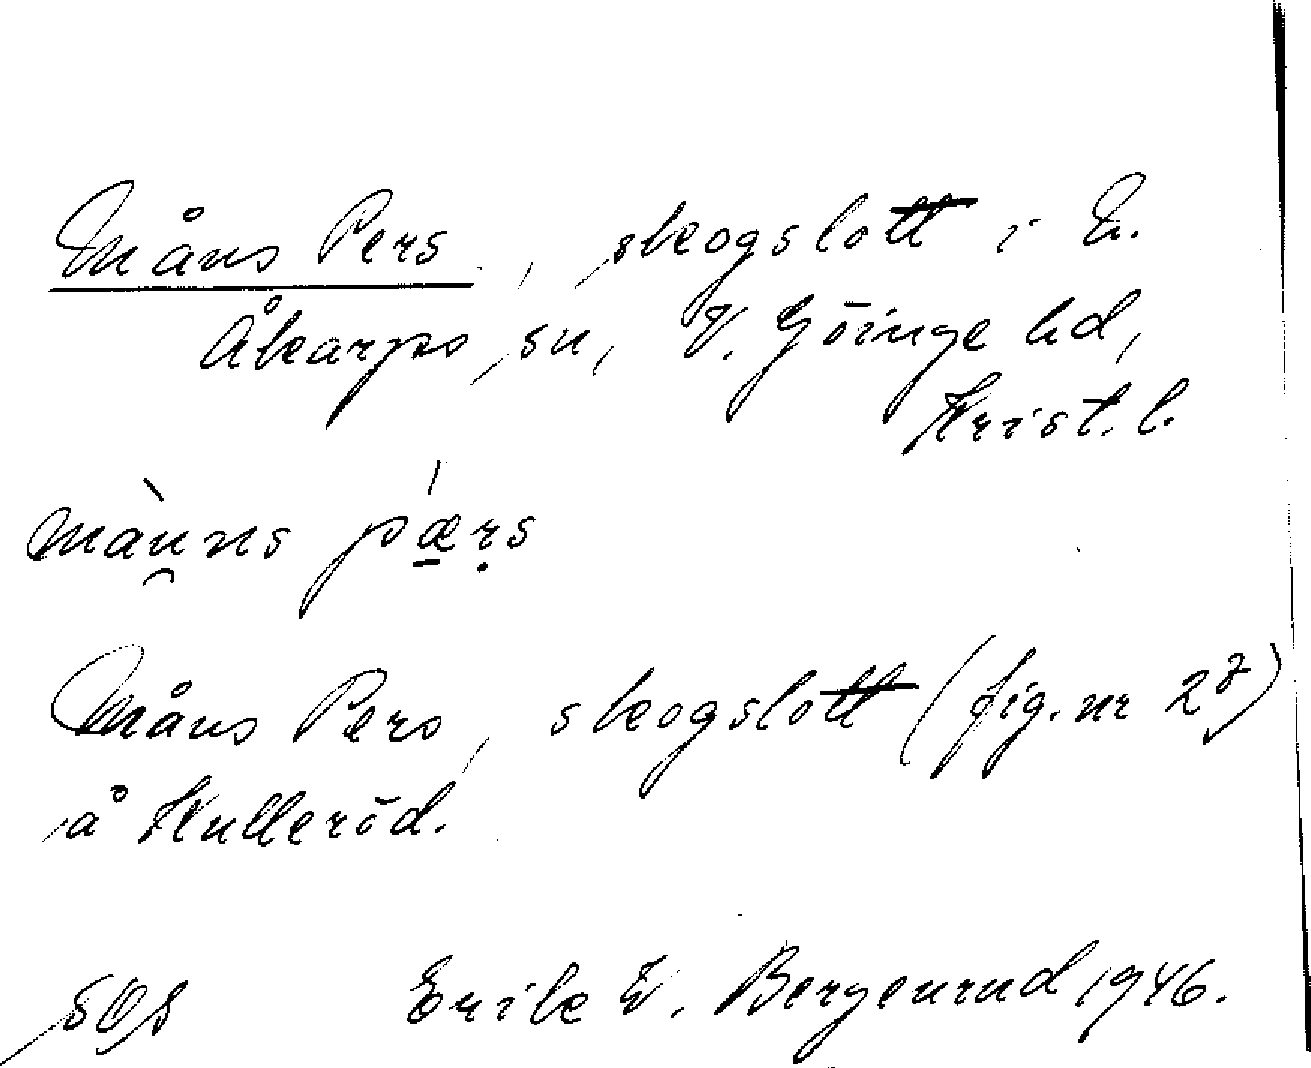 Måns Pers, skogslott i N.
Åkarps sn, V. Göinge hd,
Krist. l.
månns pærs
Måns Pers, skogslott (fig. nr 27)
å Hulleröd.
Erik W. Bergenrud 1946.